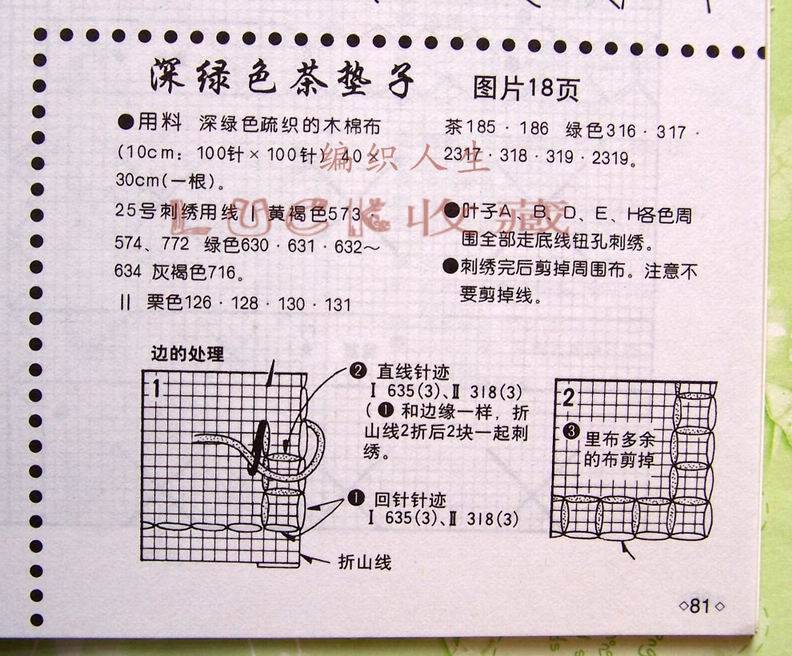 深绿色茶垫子 图片18页
●用料 深绿色疏织的木棉布
(10cm: 100针×100针) 40×
30cm(一根)。
25号刺绣用线Ⅰ黄褐色573·
574、772 绿色630·631·632~
634 灰褐色716。
Ⅱ 栗色126·128·130·131
茶185·186 绿色316·317·
2317·318·319·2319。
●叶子A、B、D、E、H各色周
围全部走底线钮孔刺绣。
●刺绣完后剪掉周围布。注意不
要剪掉线。
编织人生
LUCK收藏
边的处理
1
❷ 直线针迹
Ⅰ 635(3)、Ⅱ 318(3)
(❶ 和边缘一样，折
山线2折后2块一起刺
绣。
❶ 回针针迹
Ⅰ 635(3)、Ⅱ 318(3)
折山线
2
❸ 里布多余
的布剪掉
◇81◇